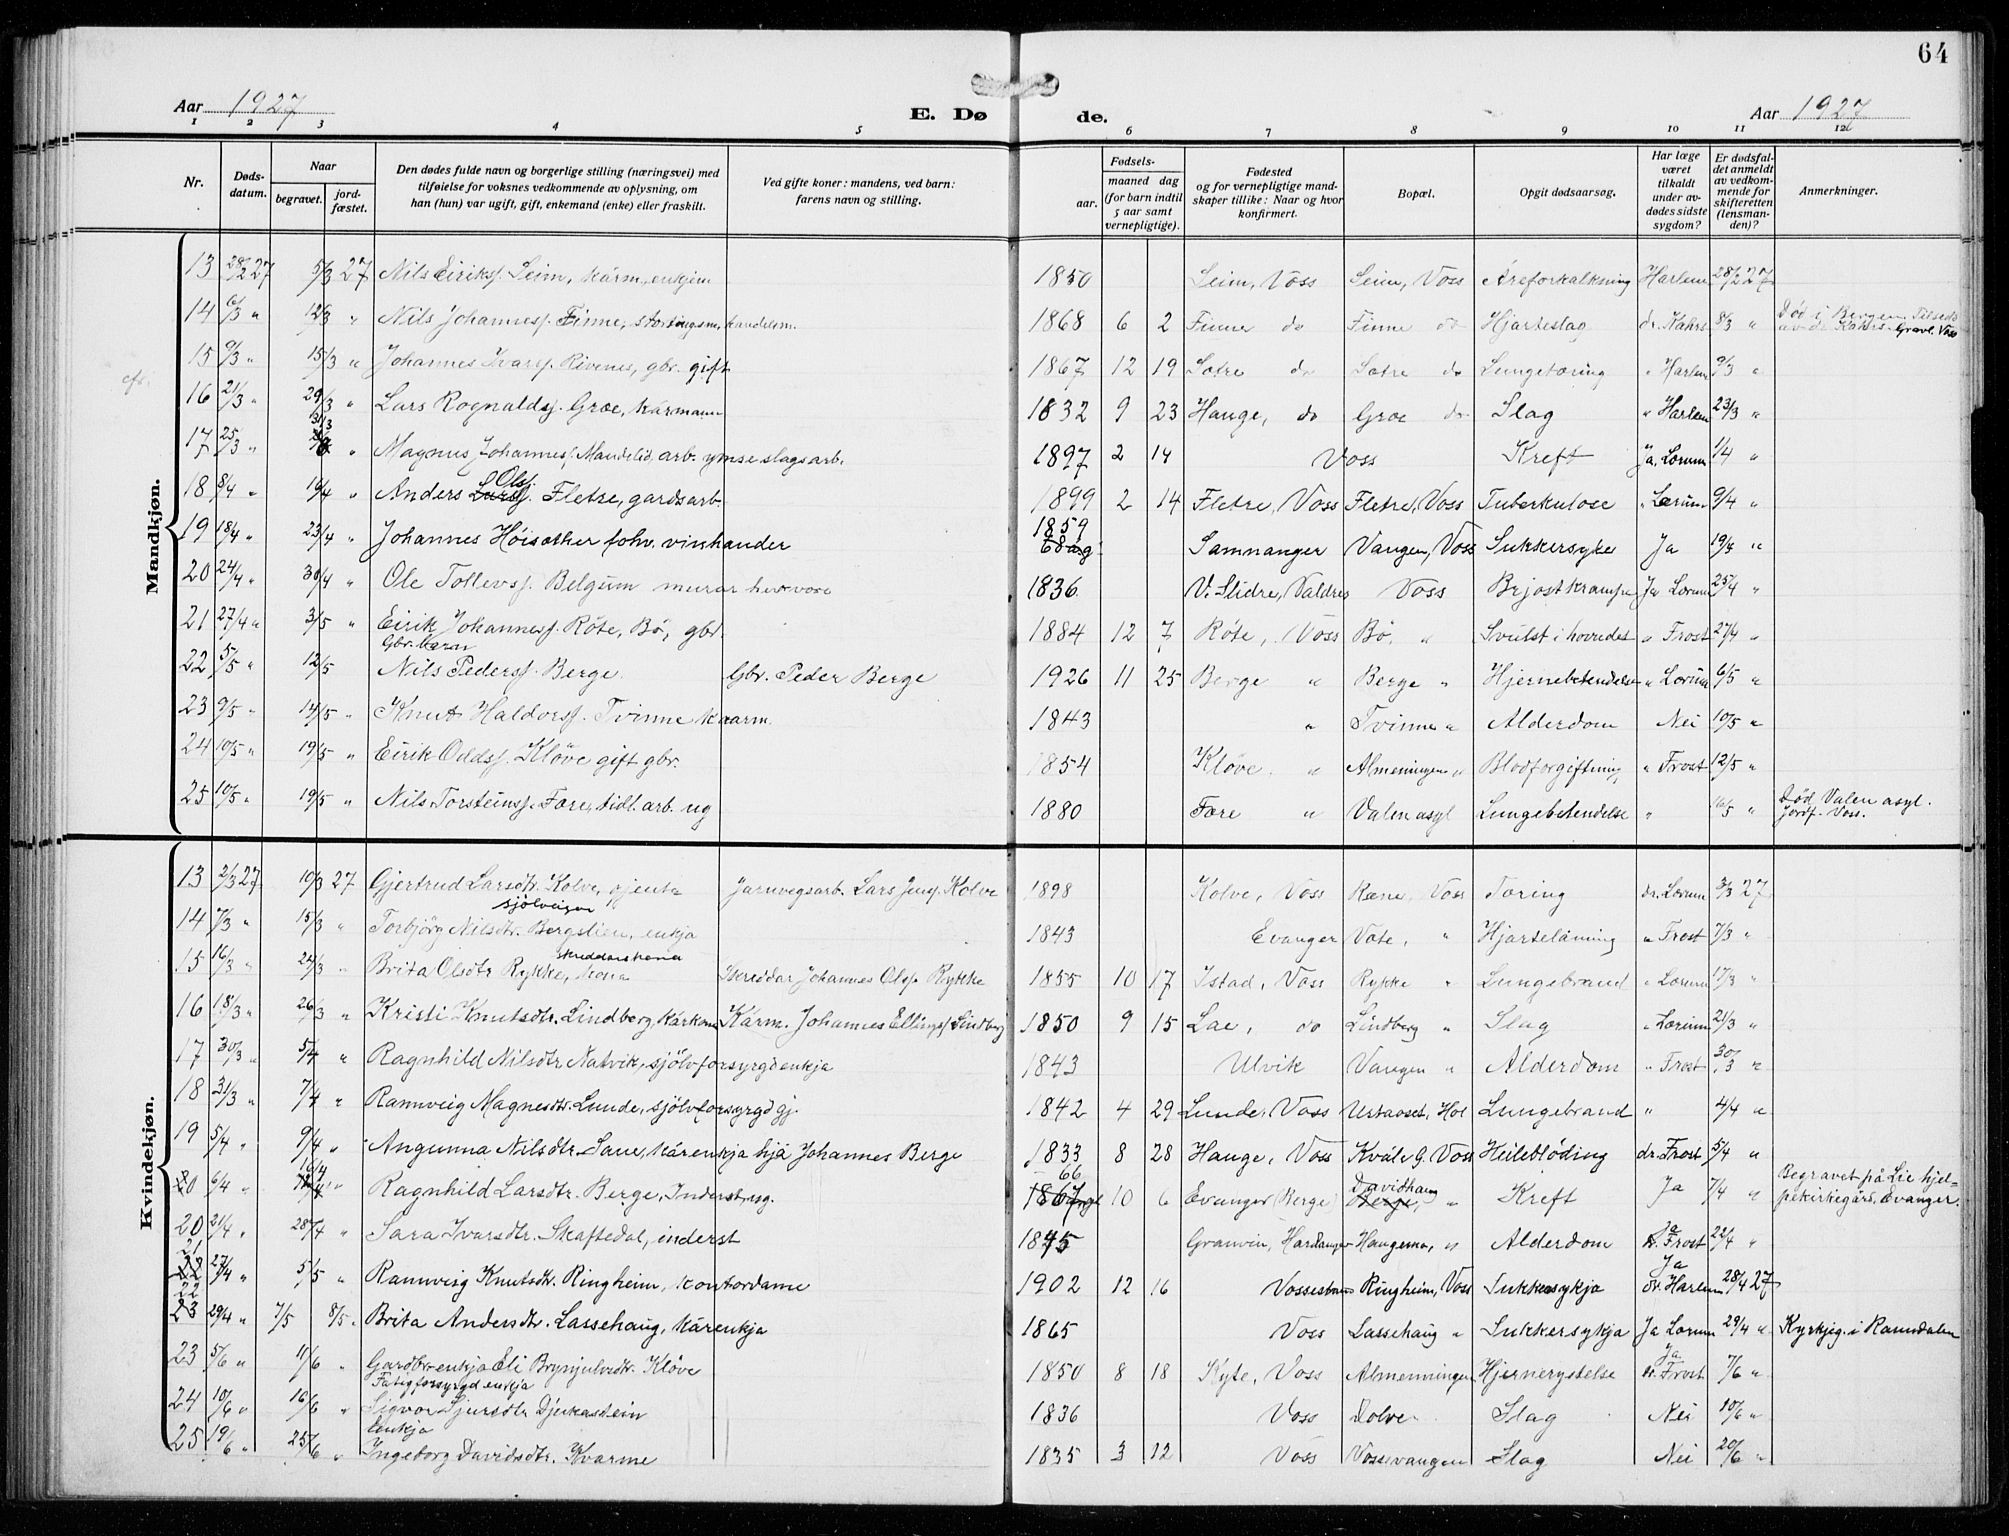 64
Aar 1927
E. Dø
de.
Aar 1927
1 2 3 4 5 6 7 8 9 10 11 12
Nr.
Døds-
datum.
Naar
begravet.
jord-
fæstet.
Den dødes fulde navn og borgerlige stilling (næringsvei) med
tilføielse for voksnes vedkommende av oplysning, om
han (hun) var ugift, gift, enkemand (enke) eller fraskilt.
Ved gifte koner: mandens, ved barn:
farens navn og stilling.
Fødsels-
aar.
maaned dag
(for barn indtil
5 aar samt
vernepligtige).
Fødested
og for vernepligtige mand-
skaper tillike: Naar og hvor
konfirmert.
Bopæl.
Opgit dødsaarsag.
Har læge
været
tilkaldt
under av-
dødes sidste
sygdom?
Er dødsfal-
det anmeldt
av vedkom-
mende for
skifteretten
(lensman-
den)?
Anmerkninger.
Mandkjøn.
13 28/2 27 5/3 27 Nils Eiriksf. Seim, kårm., enkjem 1850 Seim, Voss Seim, Voss Åreforkalkning Harlem 28/2 27
14 6/3 " 12/3 " Nils Johannesf. Finne, stortingsm, handelsm. 1868 6 2 Finne do Finne do Hjarteslag dr. Kahrs 8/3 " Død i Bergen.
Gravl. Voss
cfr.
15 9/3 " 15/3 " Johannes Ivarsf. Rivenes, gbr. gift 1867 12 19 Sætre do Sætre do Lungetæring " Harlem 9/3 "
16 21/3 " 29/3 " Lars Rognaldsf. Groe, kårmann 1832 9 23 Hauge, do Groe do Slag " Harlem 23/3 "
31/3
17 25/3 " " Magnus Johannesf. Mandelid, arb. ymse slags arb. 1897 2 14 Voss Kreft Ja, Lorum 1/4 "
Olsf.
18 8/4 " 16/4 " Anders Larsf. Fletre, gardsarb. 1899 2 14 Fletre, Voss Fletre, Voss Tuberkulose " Lærum 9/4 "
1859
19 18/4 " 23/4 " Johannes Höisæther fohv. vinhandler Samnanger Vangen, Voss Sukkersyke Ja 19/4 "
20 24/4 " 30/4 " Ole Tollevsf. Belgum murar 1836 V. Slidre, Valdres Voss Brjostkrampe Ja Lorum 25/4 "
21 27/4 " 3/5 " Eirik Johannesf. Röte, Bö, gbr. 1884 12 7 Röte, Voss Bö, " Svulst i hovudet " Frost 27/4 "
Gbr. barn
22 5/5 " 12/5 Nils Pedersf. Berge Gbr. Peder Berge 1926 11 25 Berge " Berge " Hjernebetendelse " Lorum 6/5 "
23 9/5 " 14/5 " Knut Haldorsf. Tvinne kaarm. 1843 " Tvinne " Alderdom Nei 10/5 "
24 10/5 " 19/5 " Eirik Oddsf. Klöve gift gbr. 1854 Klöve " Almenningen " Blodforgiftning " Frost 12/5 "
25 10/5 " 19/5 " Nils Torsteinsf. Fære, tidl. arb. ug 1880 Fære " Valen asyl Lungebetendelse " 16/5 " Död Valen asyl.
Jordf. Voss.
Kvindekjøn.
13 2/3 27 10/3 27 Gjertrud Larsdtr. Kolve, gjenta Jarnvegsarb. Lars Jensf. Kolve 1898 Kolve, Voss Rene, Voss Tæring dr. Lorum 3/3 27
sjölveigar
14 7/3 " 15/3 " Torbjörg Nilsdtr. Bergslien, enkja 1843 Evanger Vate, " Hjartelåming " Frost 7/3 "
skreddarkona
15 16/3 " 24/3 " Brita Olsdtr Rykke, kona Skreddar Johannes Olsf. Rykke 1855 10 17 Istad, Voss Rykke " Lungebrand " Lorum 17/3 "
16 18/3 " 26/3 " Kristi Knutsdtr. Lindberg, kårkona Kårm. Johannes Ellingsf. Lindberg 1850 9 15 Lae, do Lindberg " Slag " Lorum 21/3 "
17 30/3 " 5/4 " Ragnhild Nilsdtr. Natvik, sjölvforsyrgd enkja 1843 Ulvik Vangen " Alderdom " Frost 30/3 "
18 31/3 " 7/4 " Ramveig Magnesdtr. Lunde, sjölvforsyrgd gj. 1842 4 29 Lunde, Voss Ustaoset, Hol Lungebrand " 4/4 "
19 5/4 " 9/4 " Angunna Nilsdtr. Saue, kårenkja hjå Johannes Berge 1833 8 28 Hauge, Voss Kvåle G. Voss Heileblöding dr. Frost 5/4 "
20 6/4 " 16/4 " Ragnhild Larsdtr. Berge, Inderst, ug. 66 1867 10 6 Evanger (Berge) Davidhaug Berge, " Kreft Ja 7/4 " Begravet på Lie hjel-
pekirkegård. Evanger.
20 21/4 " 28/4 " Sara Ivarsdtr. Skaftedal, inderst 1845 Granvin, Hardanger Haugamo, " Alderdom Ja Frost 22/4 "
21 22 27/4 " 5/5 " Ramveig Knutsdtr. Ringheim, kontordame 1902 12 16 Vossestrand Ringheim, Voss Sukkersykja Ja dr. Harlem 28/4 27
22 23 29/4 " 7/5 8/5 " Brita Andersdtr. Lassehaug, kårenkja 1865 Voss Lassehaug " Sukkersykja Ja Lorum 29/4 " Kyrkjeg. i Raundalen
23 5/6 " 11/6 " Gardbr.enkja Eli Brynjulvsdtr. Klöve 1850 8 18 Kyte, Voss Almenningen Hjernerystelse Ja dr. Frost 7/6 "
Fatigforsyrgd enkja
24 10/6 " 16/6 " Sigvor Sjursdtr Djukastein 1836 Voss Dolve Slag Nei 10/6 "
Enkja
25 19/6 " 25/6 " Ingeborg Davidsdtr. Kvarme 1835 3 12 Voss Vossevangen Slag Nei 20/6 "